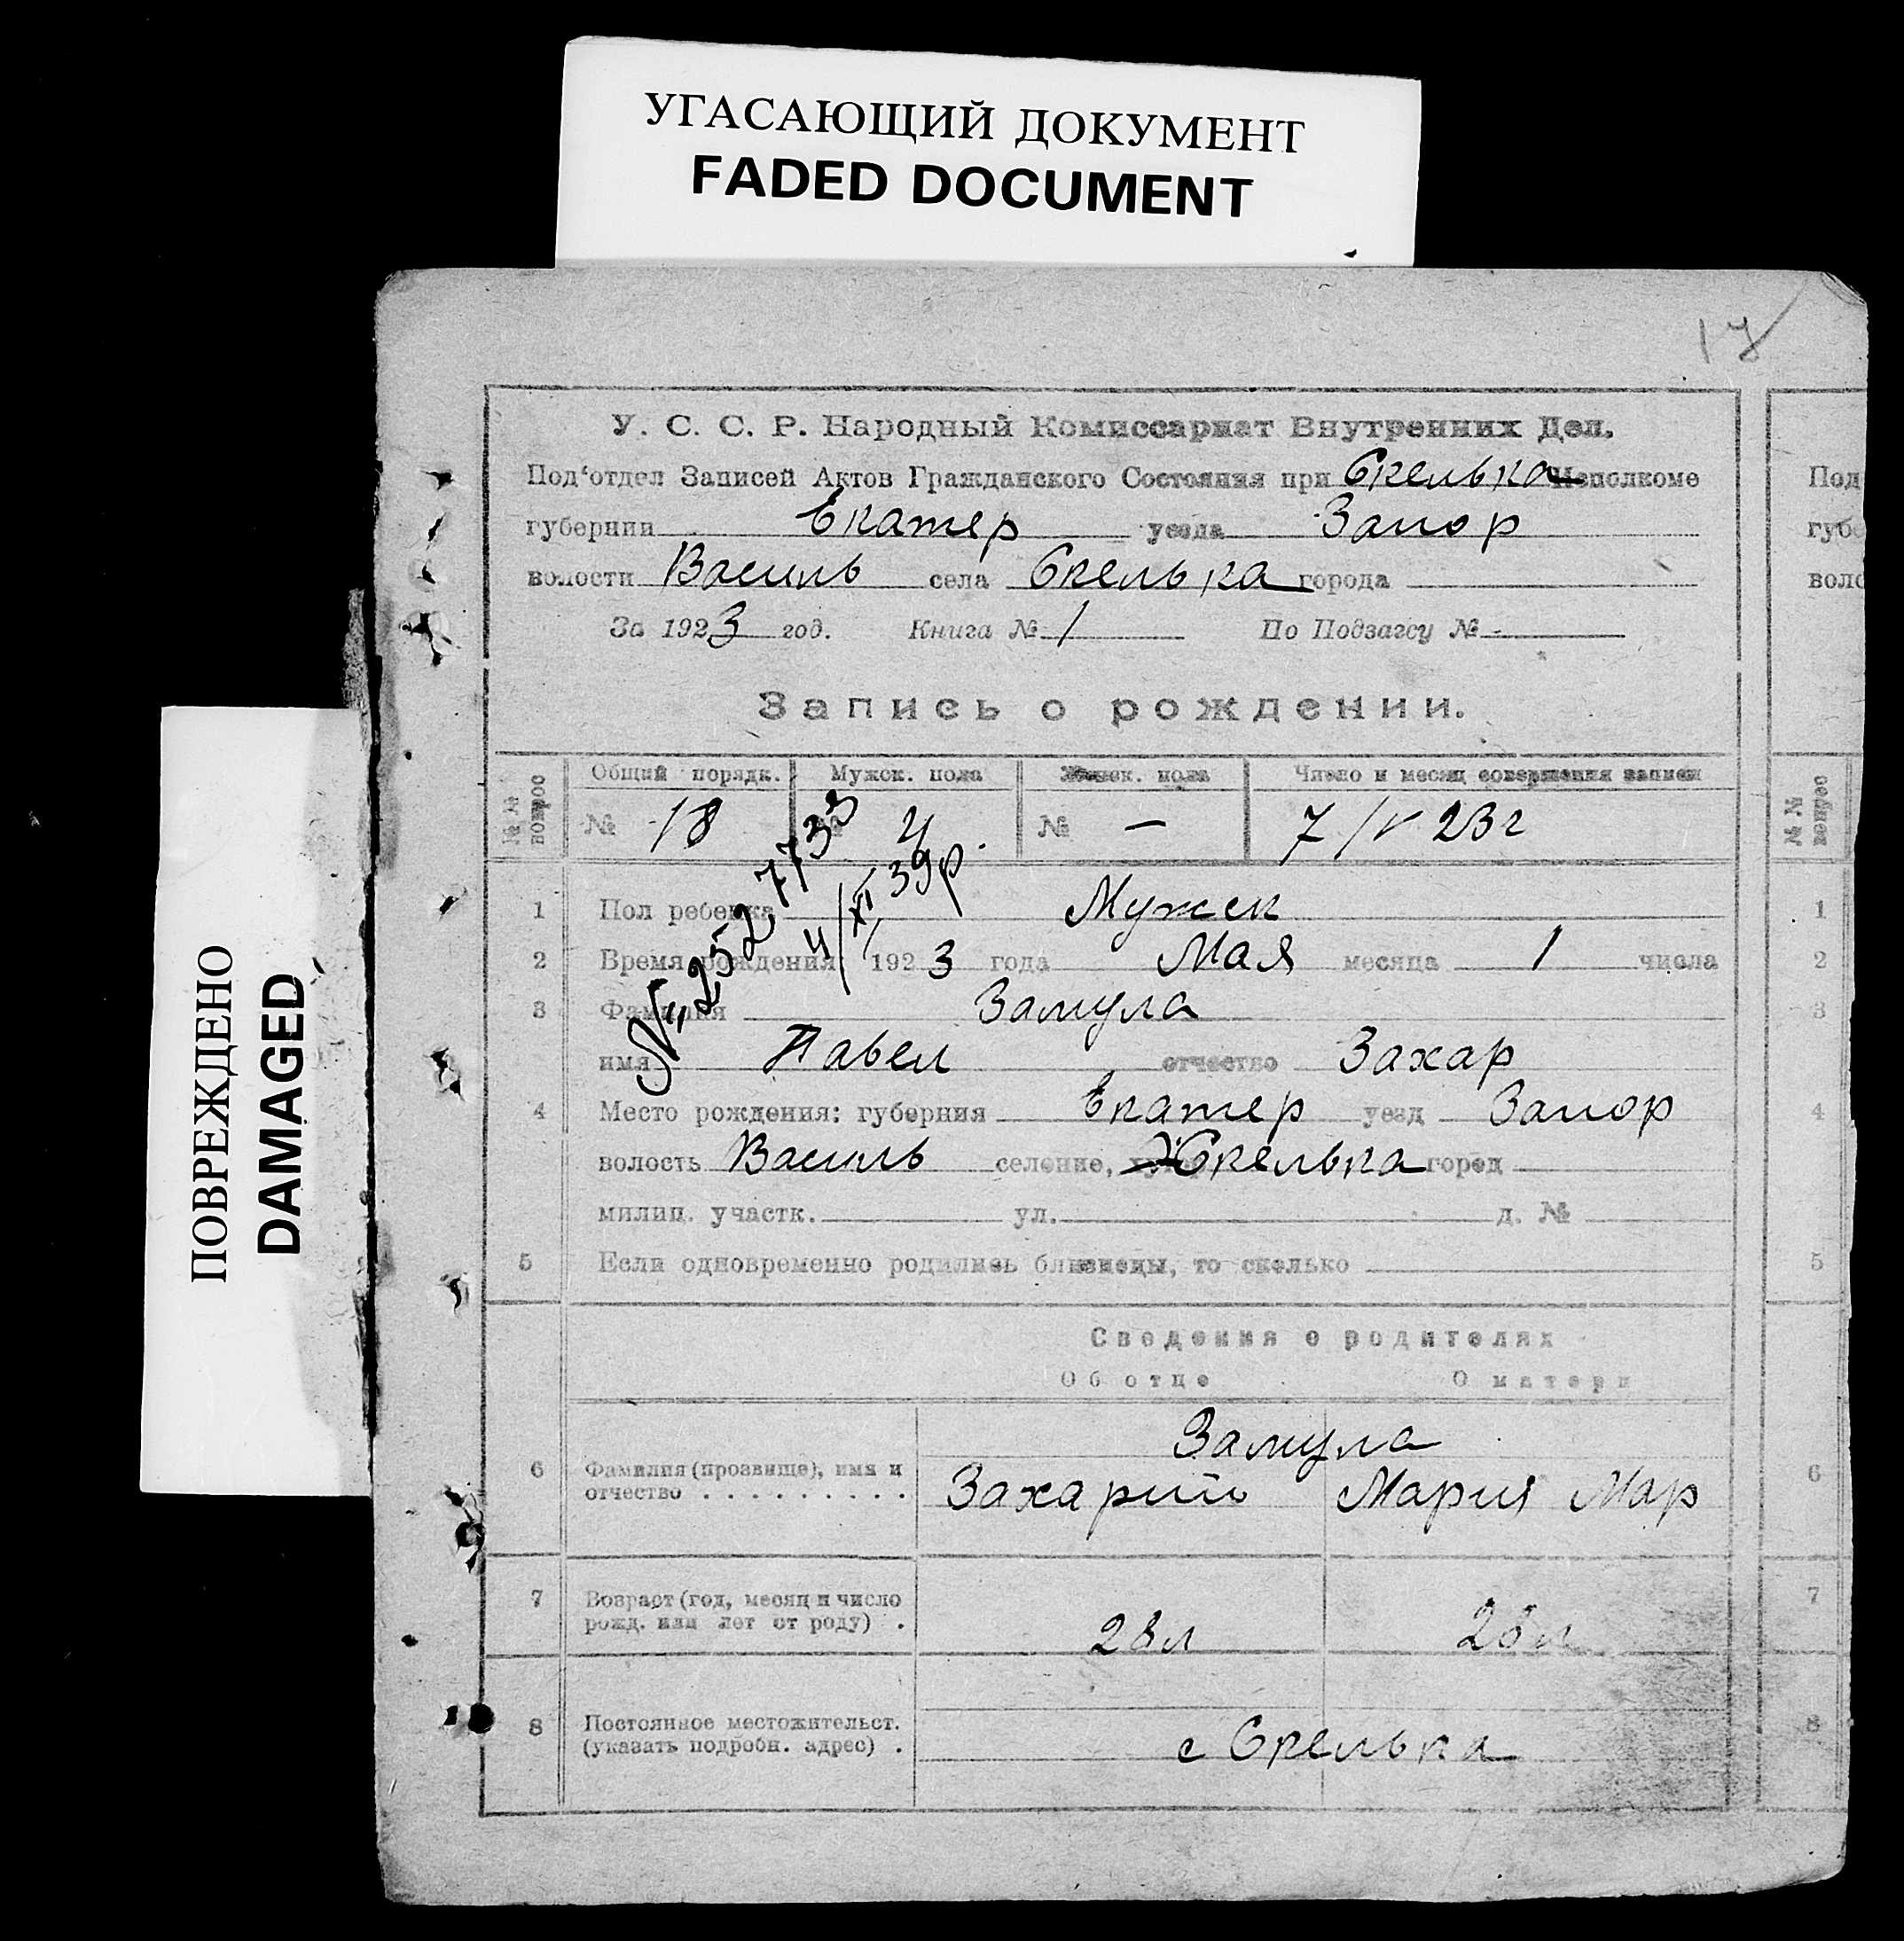 УГАСАЮЩИЙ ДОКУМЕНТ
FADED DOCUMENT
ПОВРЕЖДЕНО
DAMAGED
17
У. С. С. Р. Народный Комиссариат Внутренних Дел.
Под‘отдел Записей Актов Гражданского Состояния при Скелька Исполкоме
губернии Екатер уезда Запор
волости Василь села Скелька города
За 1923 год. Книга № 1 По Подзагсу № -
Запись о рождении.
№№ вопрос Общий порядк. Мужск. пола Женск. пола Число и месяц совершения записи
№ 18 № 4 № — 7/V 23 г
№ 252 7733
4/XI 39р.
1 Пол ребенка Мужск
2 Время рождения 1923 года Мая месяца 1 числа
3 Фамилия Замула
имя Павел отчество Захар
4 Место рождения: губерния Екатер уезд Запор
волость Василь селение, Скелька город
милиц. участк. ул. д. №
5 Если одновременно родились близнецы, то сколько
Сведения о родителях
Об отце О матери
Замула
6 Фамилия (прозвище), имя и
отчество . . . . . . . . . Захарий Мария Мар
7 Возраст (год, месяц и число
рожд. или лет от роду) . 28 л 28 л
8 Постоянное местожительст.
(указать подробн. адрес) . с Скелька
Под
губе
воло
№№ вопрос
1
2
3
4
5
6
7
8